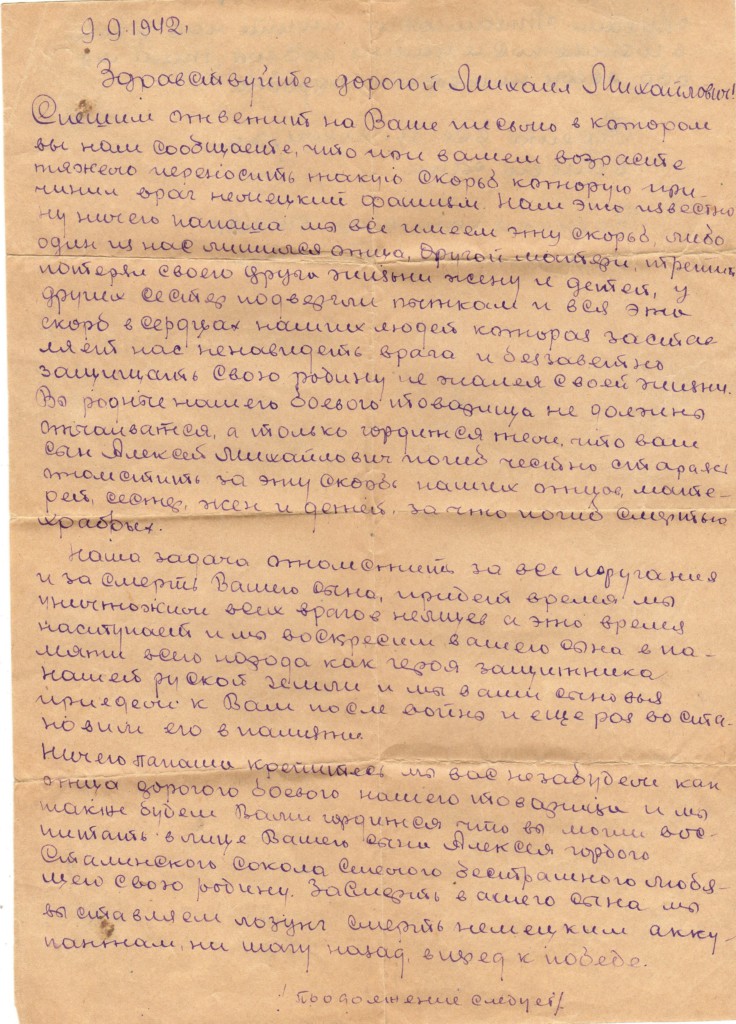 9.9.1942.
Здравствуйте дорогой Михаил Михайлович!
Спешим ответит на Ваше письмо в котором
вы нам сообщаете, что при вашем возрасте
тяжело переносить такую скорьб которую при-
чинил враг немецкий фашизм. Нам это известно
ну ничего папаша мы все имеем эту скорьб, либо
один из нас лишился отца, другой матери, третий
потерял своего друга жизни жену и детей, у
других сестер подвергли пыткам и вся эта
скорб в сердцах наших людей котораз застав
ляет нас ненавидеть врага и беззаветно
защищать свою родину не жалея своей жизни.
Вы родные нашего боевого товарища не должны
отчаиватся, а только гордится тем, что ваш
сын Алексей Михайлович погиб честно стараяс
отомстить за эту скорбь наших отцов, мате-
рей, сестер, жен и детей, за что погиб смертью
храбрых.
Наша задача отомстить за все поругания
и за смерть Вашего сына, придет время мы
уничтожим всех врагов немцев а это время
наступает и мы воскресим вашего сына в па-
мяти всего народа как героя защитника
нашей руской земли и мы ваши сыновья
приедем к Вам после войны и еще раз воста-
новим его в памяти.
Ничего папаша крепитесь мы вас незабудем как
отца дорогого боевого нашего товарища и мы
также будем Вами гордится что вы могли вос-
питать в лице Вашего сына Алексея гордого
Сталинского сокола смелого бестрашного любя-
щего свою родину. За смерть вашего сына мы
выставляем лозунг смерть немецким окку-
пантам, ни шагу назад, вперед к победе.
/Продолжение следует/